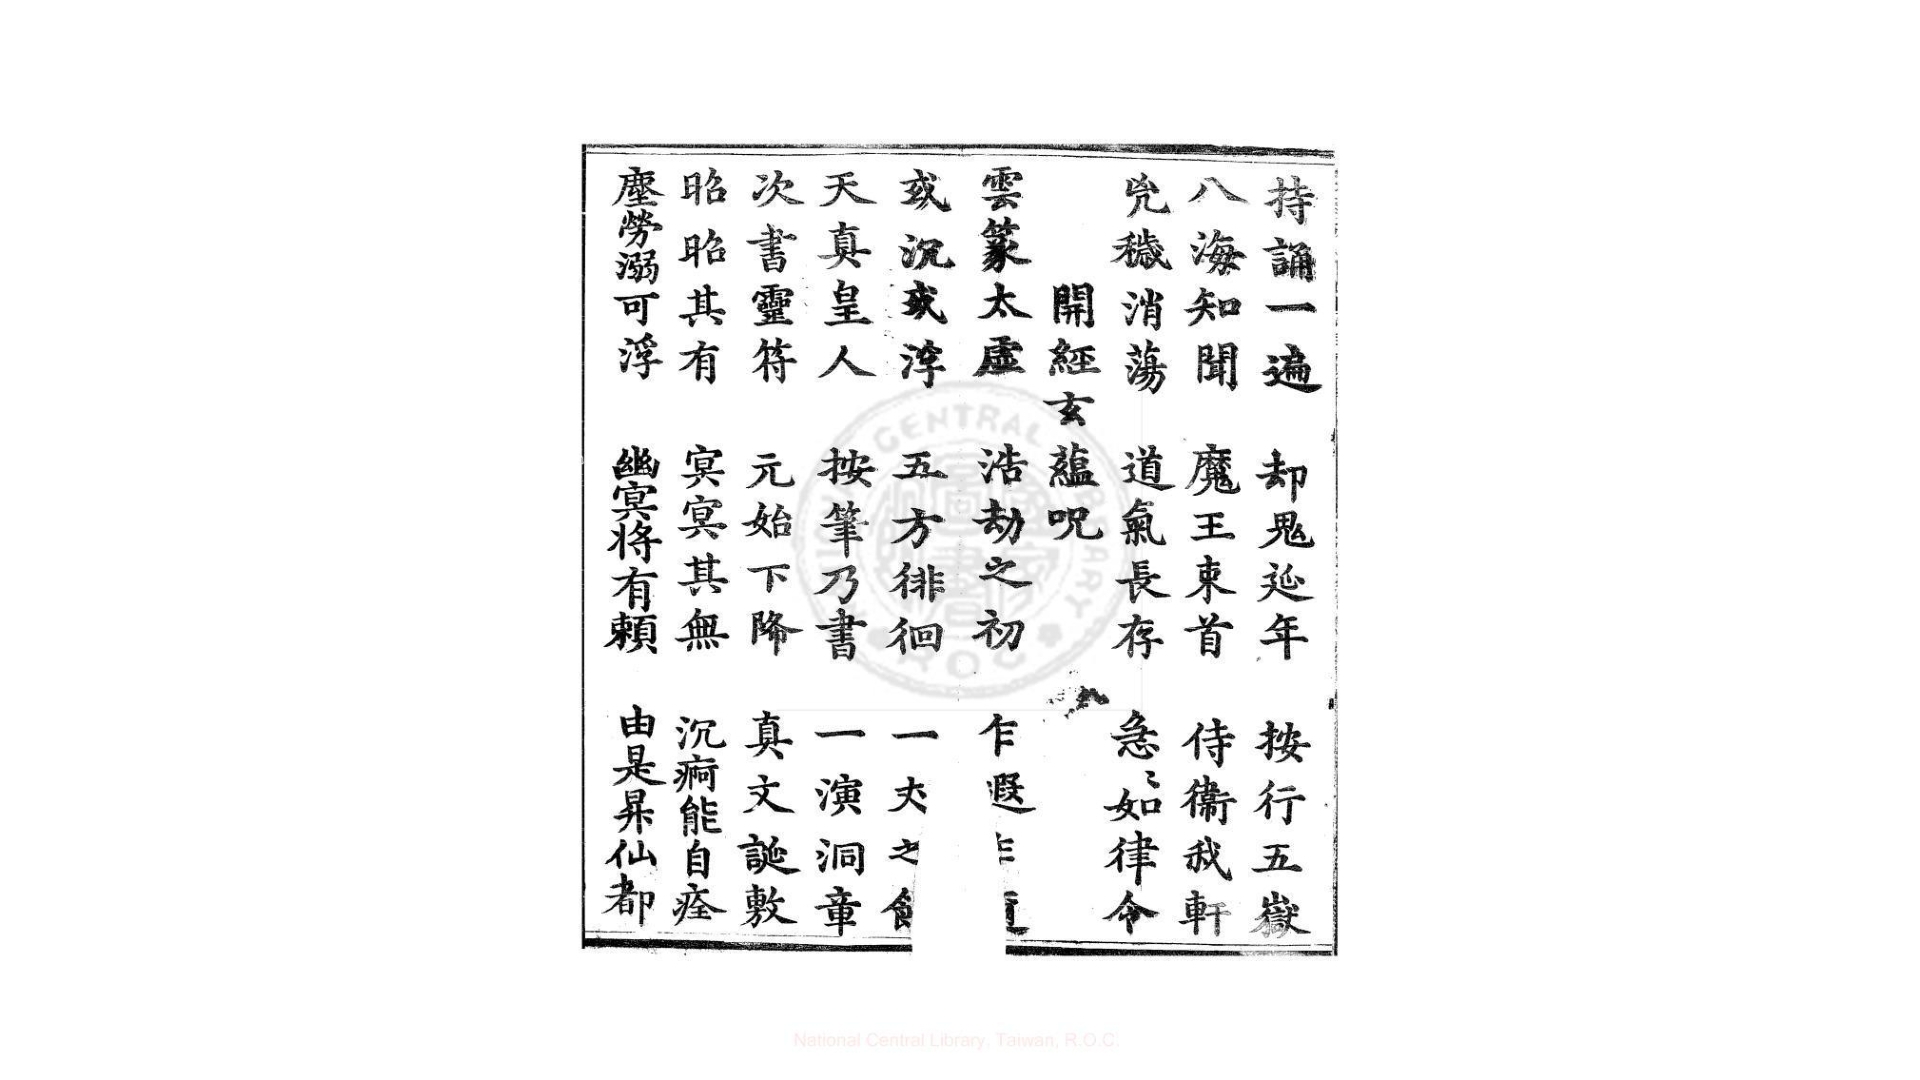 持誦一遍　却鬼延年　按行五嶽
八海知聞　魔王束首　侍衛我軒
兇穢消蕩　道氣長存　急〻如律令
開經玄蘊呪
雲篆太虛　浩劫之初　乍遐
或沉或浮　五方徘徊　一丈之
天真皇人　按筆乃書　一演洞章
次書靈符　元始下降　真文誕敷
昭昭其有　冥冥其無　沉痾能自痊
塵勞溺可浮　幽冥将有頼　由是昇仙都
NATIONAL CENTRAL LIBRARY R.O.C.
國家圖書館
National Central Library, Taiwan, R.O.C.